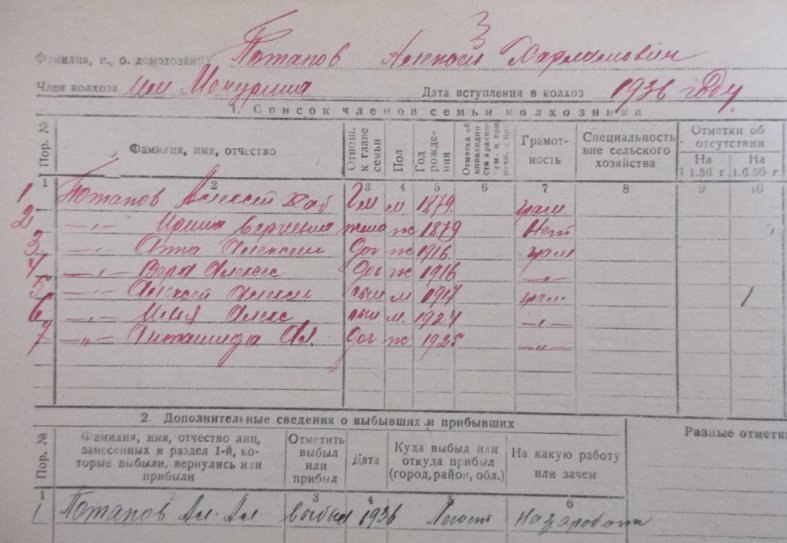 3
Фамилия, и., о. домохозяина Потапов Алексей Харламович
Член колхоза им Мичурина Дата вступления в колхоз 1936 году
1. Список членов семьи колхозника
Пор. № Фамилия, имя, отчество Отнош. к главе семьи Пол Год рождения Отметка об инвалидности Грамотность Специальность вне сельского хозяйства Отметки об отсутствии На 1.1.36 г. На 1.6.36 г.
1 2 3 4 5 6 7 8 9 10
1 Потапов Алексей Хар Гл м 1879 грам
2 —„— Ирина Сергеевна жена ж 1879 Нет
3 —„— Анна Алексеев доч ж 1916 грам
4 —„— Вера Алекс доч ж 1916 —„—
5 —„— Алексей Алексе сын м 1917 грам 1
6 —„— Илья Алекс сын м. 1924 —„—
7 —„— Ал. доч ж 1925 —„—
2. Дополнительные сведения о выбывших и прибывших
Пор. № Фамилия, имя, отчество лиц, занесенных в раздел 1-й, которые выбыли, вернулись или прибыли Отметить выбыл или прибыл Дата Куда выбыл или откуда прибыл (город, район, обл.) На какую работу или зачем Разные отметки
1 2 3 4 5 6
1 Потапов Ал. Ал выбыл 1936 На заработ